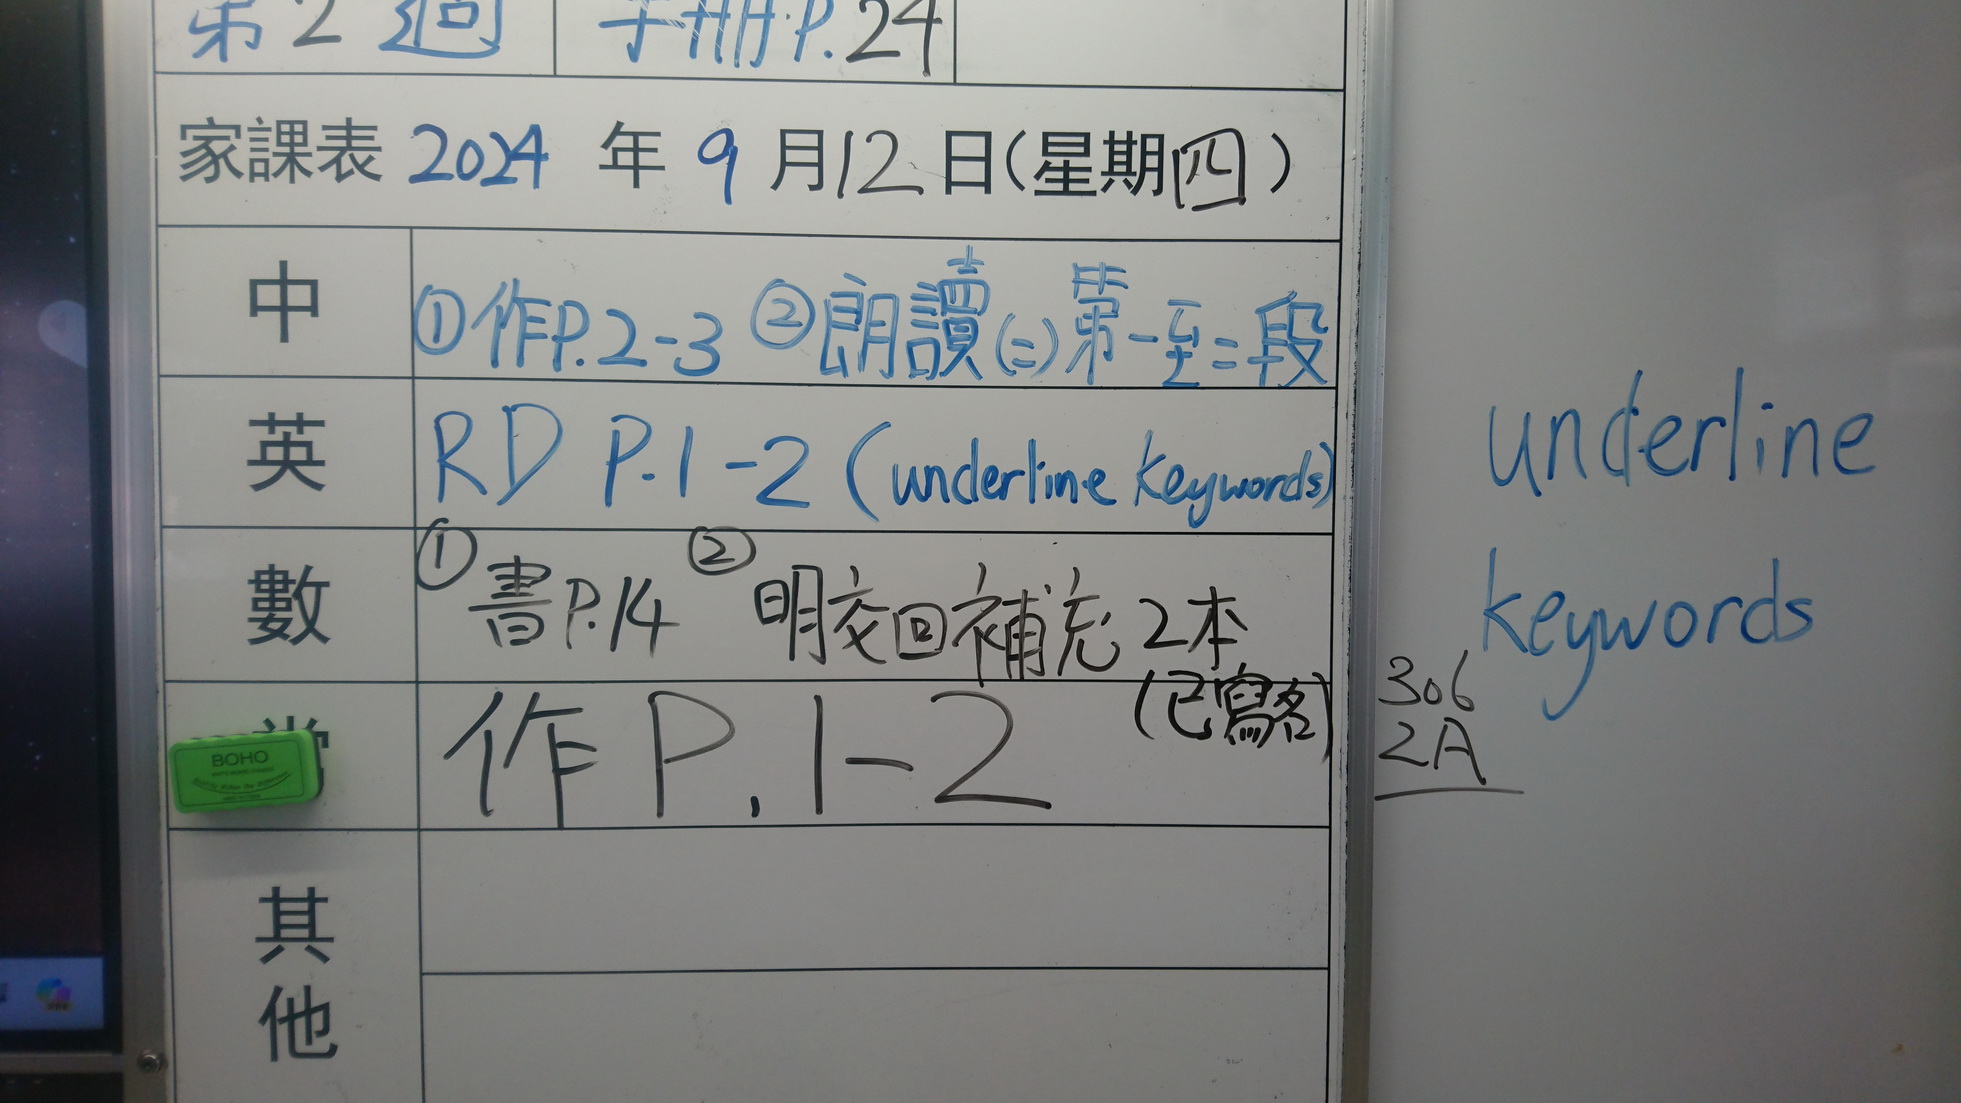 第2週 手冊P.24
家課表 2024 年 9 月 12 日(星期四)
中 ①作P.2-3 ②朗讀(二)第一至二段
英 RD P.1-2 (underline keywords)
數 ①書P.14 ②明交回補充2本
(已寫名)
常 作P.1-2
其他
BOHO
underline
keywords
306
2A